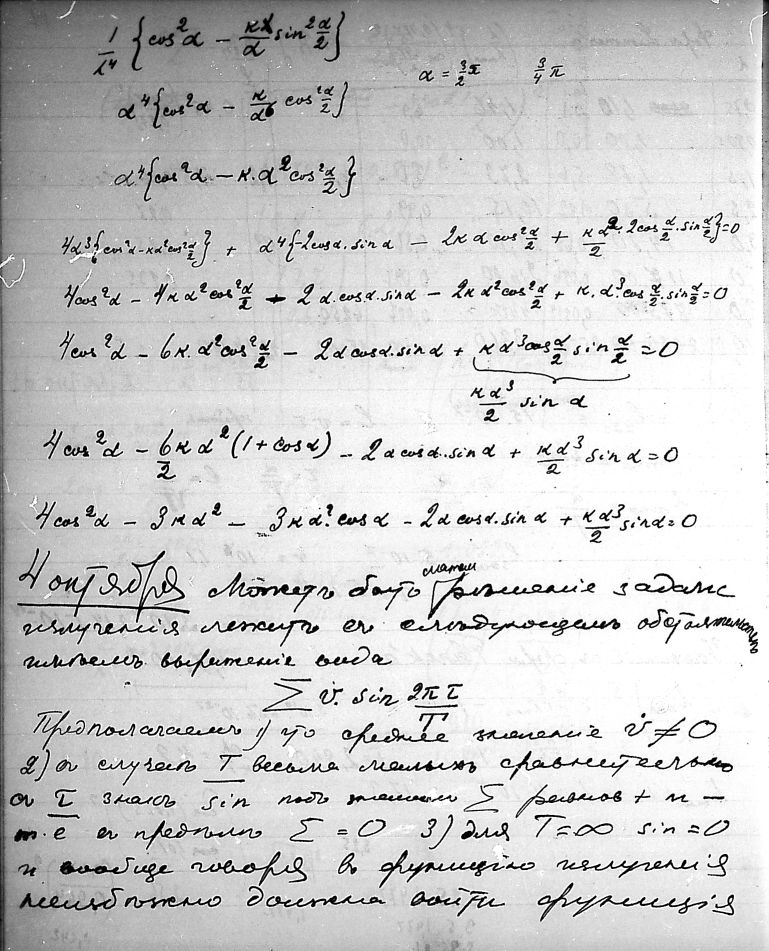 1/λ⁴ {cos²α − κλ/α sin² α/2}
α = 3/2 π   3/4 π
α⁴{cos²α − κ/α⁶ cos² α/2}
α⁴{cos²α − κ.α² cos² α/2}
4α³{cos²α − κα²cos² α/2} + α⁴{−2cosα.sinα − 2κα cos² α/2 + κα²/2 · 2cos α/2 . sin α/2} = 0
4cos²α − 4κα²cos² α/2 − 2α.cosα.sinα − 2κα²cos² α/2 + κ.α³.cos α/2 . sin α/2 = 0
4cos²α − 6κ.α²cos² α/2 − 2αcosα.sinα + κα³cos α/2 sin α/2 = 0
κα³/2 sin α
4cos²α − 6/2 κα²(1+cosα) − 2αcosα.sinα + κα³/2 sinα = 0
4cos²α − 3κα² − 3κα².cosα − 2αcosα.sinα + κα³/2 sinα = 0
4 октября Можетъ быть матем рѣшенiе задачи
излученiя лежитъ въ слѣдующемъ обстоятельствѣ
имѣемъ выраженiе вида
∑ v̇. sin 2πτ/T
Предполагаемъ 1) что среднее значенiе v̇ ≠ 0
2) въ случаѣ T весьма малыхъ сравнительно
съ τ знакъ sin подъ знакомъ ∑ равнов + и −
т.е въ предѣлѣ ∑ = 0 3) для T = ∞ sin = 0
и вообще говоря въ функцiю излученiя
неизбѣжно должна войти функцiя